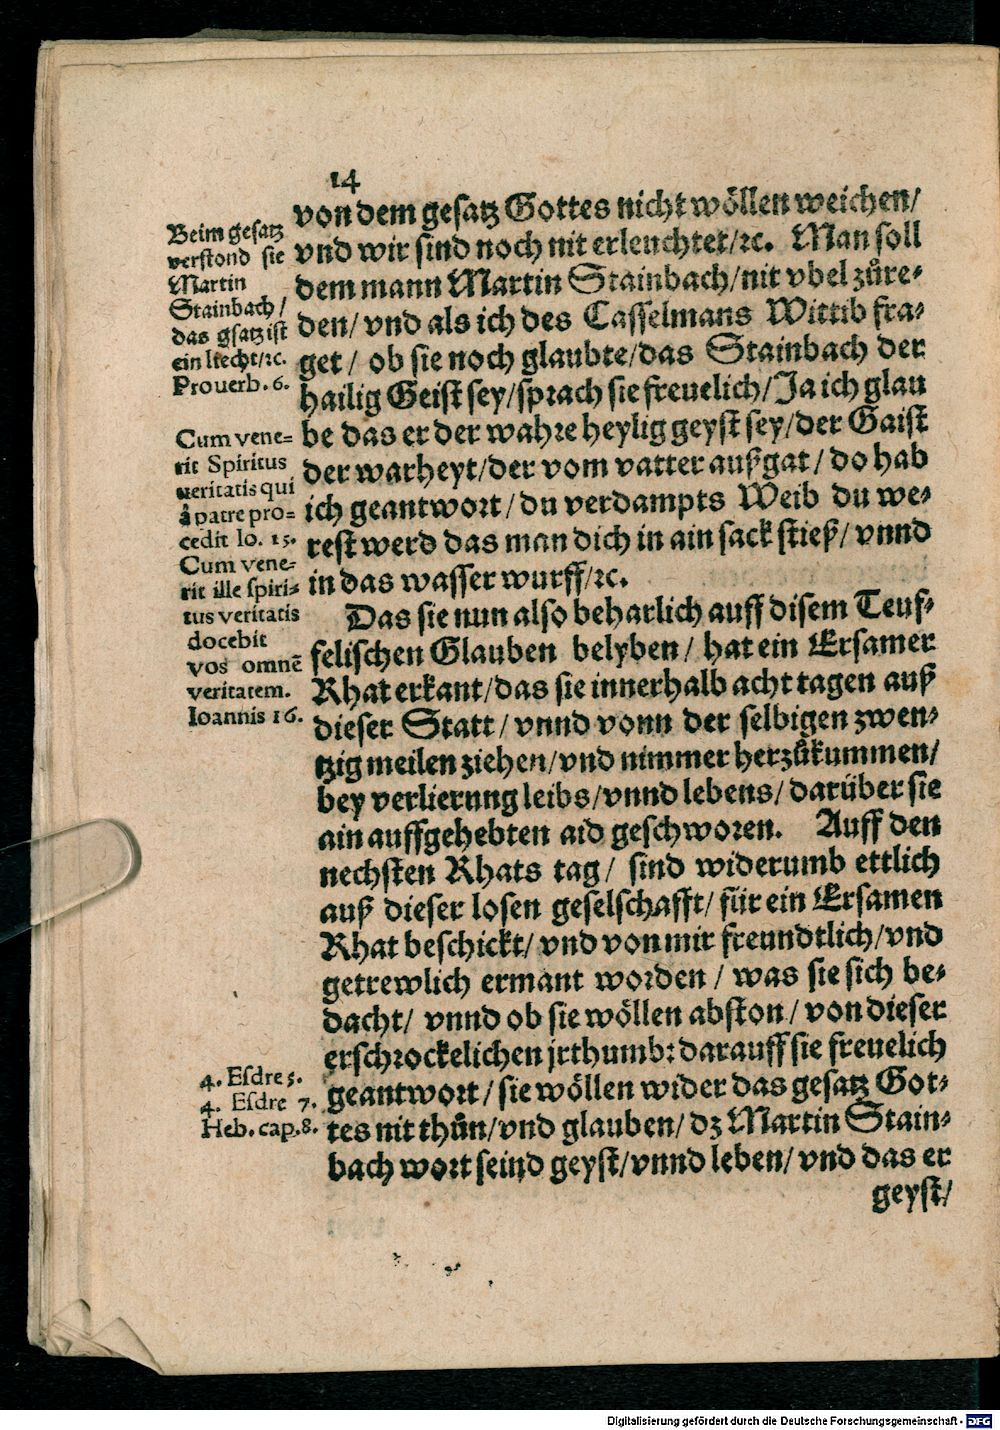 14
Beim gesatz
verstond sie
Martin
Stainbach /
das gsatz ist
ein liecht / ꝛc.
Prouerb. 6.
Cum vene=
rit Spiritus
ueritatis qui
à patre pro=
cedit Io. 15.
Cum vene=
rit ille spiri=
tus veritatis
docebit
vos omnẽ
veritatem.
Ioannis 16.
4. Esdre 5.
4. Esdre 7.
Heb. cap. 8.
von dem gesatz Gottes nicht wöllen weichen /
vnd wir sind noch nit erleuchtet / ꝛc. Man soll
dem mann Martin Stainbach / nit vbel zůre=
den / vnd als ich des Casselmans Wittib fra=
get / ob sie noch glaubte / das Stainbach der
hailig Geist sey / sprach sie freuelich / Ja ich glau
be das er der wahre heylig geyst sey / der Gaist
der warheyt / der vom vatter außgat / do hab
ich geantwort / du verdampts Weib du we=
rest werd das man dich in ain sack stieß / vnnd
in das wasser wurff / ꝛc.
Das sie nun also beharlich auff disem Teuf=
felischen Glauben belyben / hat ein Ersamer
Rhat erkant / das sie innerhalb acht tagen auß
dieser Statt / vnnd vonn der selbigen zwen=
tzig meilen ziehen / vnd nimmer herzůkummen /
bey verlierung leibs / vnnd lebens / darüber sie
ain auffgehebten aid geschworen. Auff den
nechsten Rhats tag / sind widerumb ettlich
auß dieser losen geselschafft / für ein Ersamen
Rhat beschickt / vnd von mir freundtlich / vnd
getrewlich ermant worden / was sie sich be=
dacht / vnnd ob sie wöllen abston / von dieser
erschrockelichen jrthumb: darauff sie freuelich
geantwort / sie wöllen wider das gesatz Got=
tes nit thůn / vnd glauben / dz Martin Stain=
bach wort seind geyst / vnnd leben / vnd das er
geyst /
Digitalisierung gefördert durch die Deutsche Forschungsgemeinschaft - DFG